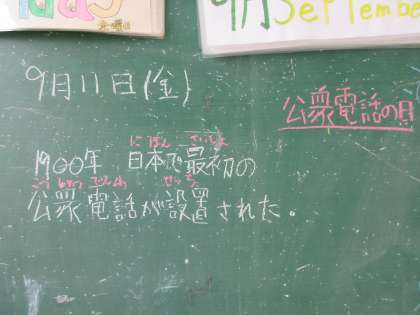 9月 September
9月11日(金)
公衆電話の日
にほん さいしょ
1900年 日本で最初の
こうしゅうでんわ せっち
公衆電話が設置された。